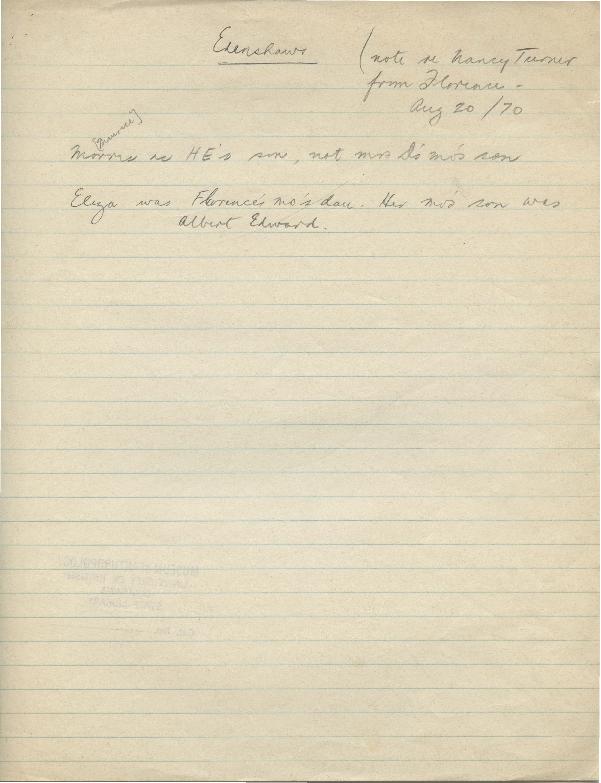 Edenshaws
(note re Nancy Turner
from Florence -
Aug 20/70
[Maurice?]
Morris is HE's son, not mrs D's mo's son
Eliza was Florence's mo's dau. Her mo's son was
Albert Edward.
MUSEUM OF ANTHROPOLOGY